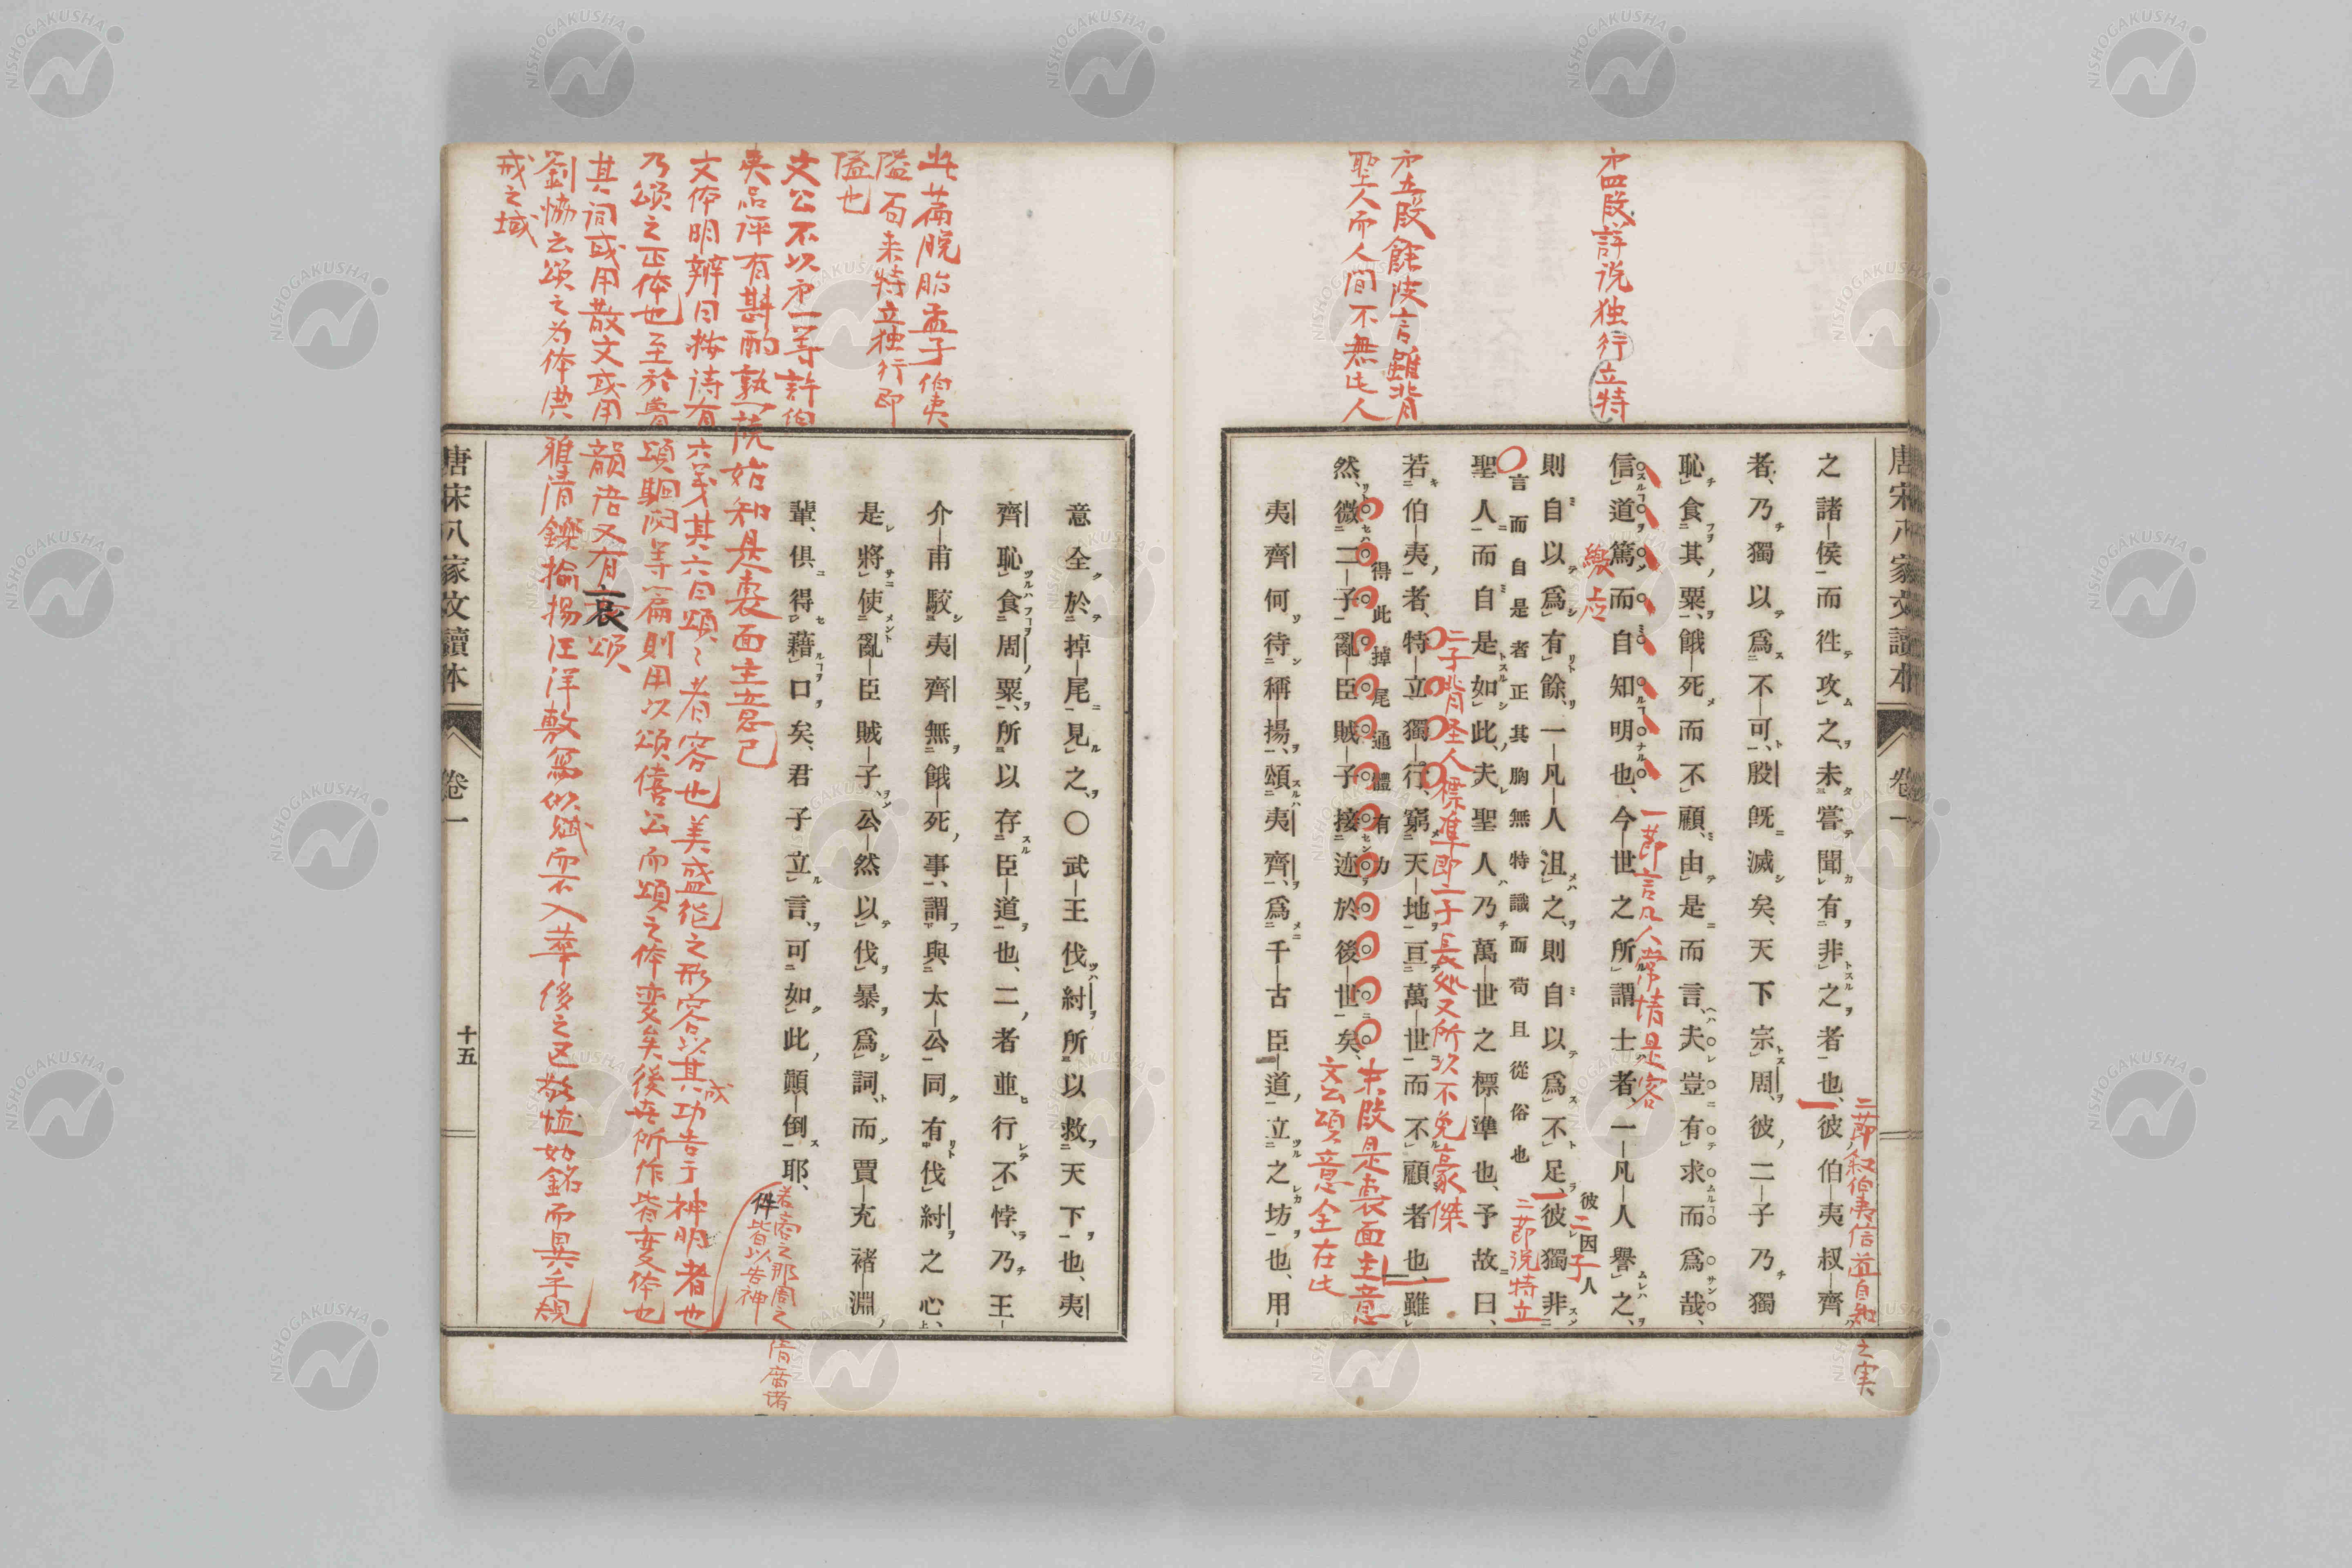 唐宋八家文讀本
卷一
之諸侯而往攻之、未嘗聞有非之者也、彼伯夷叔齊
者、乃獨以爲不可、殷旣滅矣、天下宗周、彼二子乃獨
恥食其粟、餓死而不顧、由是而言、夫豈有求而爲哉、
信道篤而自知明也、今世之所謂士者、一凡人譽之、
則自以爲有餘、一凡人沮之、則自以爲不足、彼獨非
彼因人
言而自是者正其胸無特識而苟且從俗也
聖人而自是如此、夫聖人乃萬世之標準也、予故曰、
若伯夷者、特立獨行、窮天地亘萬世而不顧者也、雖
得此掉尾通體有力
然、微二子、亂臣賊子接迹於後世矣、
夷齊何待稱揚、頌夷齊、爲千古臣道立之坊也、用
㐧四段詳说独行立特
㐧五段餘波言雖背
聖人而人间不無此人
二節叙伯夷信道自知之実
一節言凡人常情是客
三節说特立
二子背圣人標準即二子長処又所以不免豪傑
末段是裏面主意
文公頌意全在此
意全於掉尾見之、〇武王伐紂所以救天下也、夷
齊恥食周粟、所以存臣道也、二者並行不悖、乃王
介甫駁夷齊無餓死事、謂與太公同有伐紂之心、
是將使亂臣賊子、公然以伐暴爲詞、而賈充褚淵
輩、俱得藉口矣、君子立言、可如此顚倒耶、
此篇脱胎孟子伯夷
隘句来特立独行即
隘也
文公不以㐧一等許伯
夷品评有斟酌熟読始知是裏面主意已
文体明辨曰按诗有六义其六曰頌々者容也美盛徳之形容以其成功告于神明者也
若商之那周之清廟诸
件皆以告神
乃頌之正体也至於魯頌駉閟等篇則用以頌僖公而頌之体変矣後世所作皆変体也
其词或用散文或用韻语又有哀頌
劉協云頌之为体典雅清鑠揄揚汪洋敷写似赋而不入華侈之区敬慎如銘而異乎規
戒之域
唐宋八家文讀本
卷一
十五